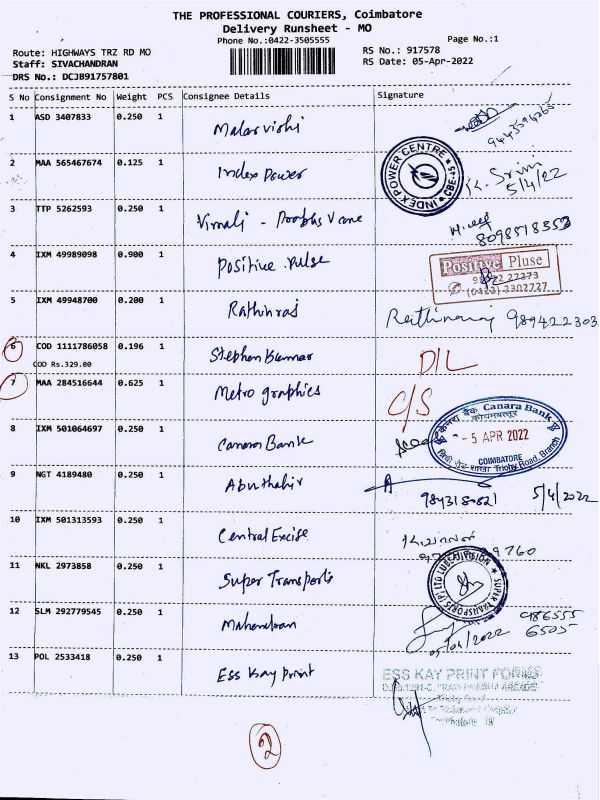 THE PROFESSIONAL COURIERS, Coimbatore
Delivery Runsheet - MO
Phone No.:0422-3505555
Page No.:1
Route: HIGHWAYS TRZ RD MO
Staff: SIVACHANDRAN
DRS No.: DCJB91757801
RS No.: 917578
RS Date: 05-Apr-2022
S No Consignment No Weight PCS Consignee Details Signature
1 ASD 3407833 0.250 1 Malarvishi
2 MAA 565467674 0.125 1 Index Power
INDEX POWER CENTRE CBE-45
K. Srini
5/4/22
3 TTP 5262593 0.250 1 Vimali -
8098518353
4 IXM 49989098 0.900 1 Positive Pulse
Positive Pluse
(0422) 2302727
5 IXM 49948700 0.200 1 Rathinraj
989422303
6 COD 1111786058 0.196 1 Stephen Kumar D/L
COD Rs.329.00
7 MAA 284516644 0.625 1 Metro graphics C/S
8 IXM 501064697 0.250 1 Canara Bank
केनरा बैंक Canara Bank
- 5 APR 2022
COIMBATORE
Trichy Road, Branch
9 NGT 4189480 0.250 1 Abuthahir
5/4/2022
10 IXM 501313593 0.250 1 Central Excise
11 NKL 2973858 0.250 1 Super Transports
SUPER TRANSPORTS (P) LTD LUBE DIVISION
12 SLM 292779545 0.250 1 Mahendran
05/04/2022
986555
65035
13 POL 2533418 0.250 1 Ess Kay Print
ESS KAY PRINT FORMS
2